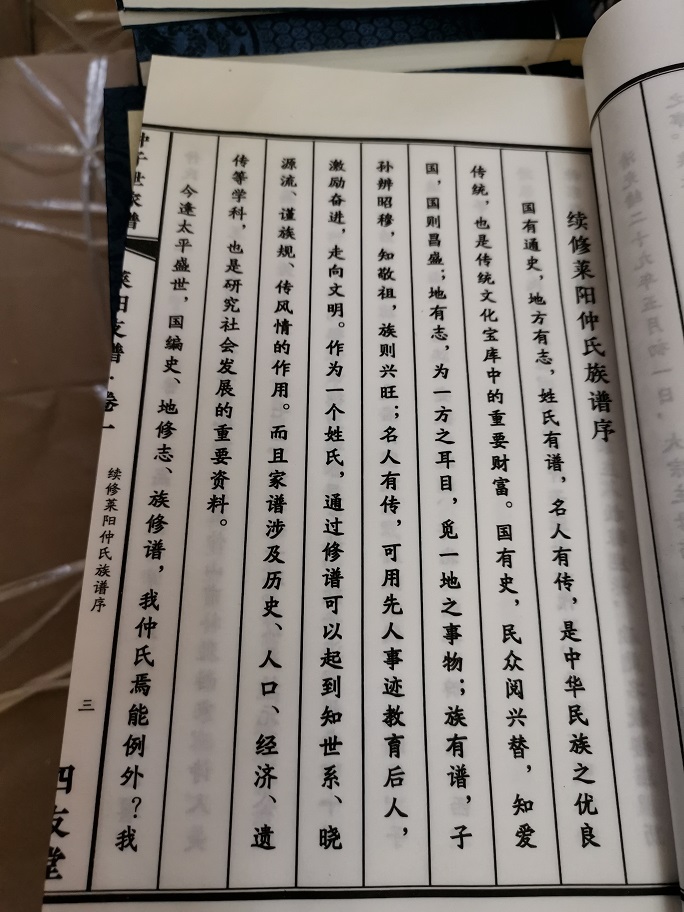 续修莱阳仲氏族谱序
国有通史，地方有志，姓氏有谱，名人有传，是中华民族之优良
传统，也是传统文化宝库中的重要财富。国有史，民众阅兴替，知爱
国，国则昌盛；地有志，为一方之耳目，觅一地之事物；族有谱，子
孙辨昭穆，知敬祖，族则兴旺；名人有传，可用先人事迹教育后人，
激励奋进，走向文明。作为一个姓氏，通过修谱可以起到知世系、晓
源流、谨族规、传风情的作用。而且家谱涉及历史、人口、经济、遗
传等学科，也是研究社会发展的重要资料。
今逢太平盛世，国编史、地修志、族修谱，我仲氏焉能例外？我
仲子世家谱
莱阳支谱·卷一
续修莱阳仲氏族谱序
三
四友堂